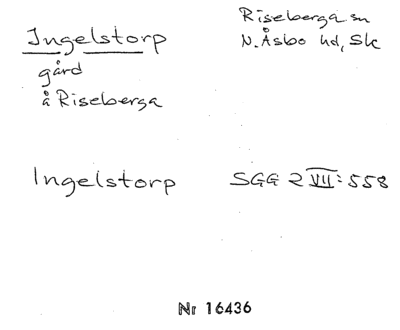 Ingelstorp
gård
å Riseberga
Riseberga sn
N. Åsbo hd, Sk
Ingelstorp
SGG 2 VII:558
Nr 16436